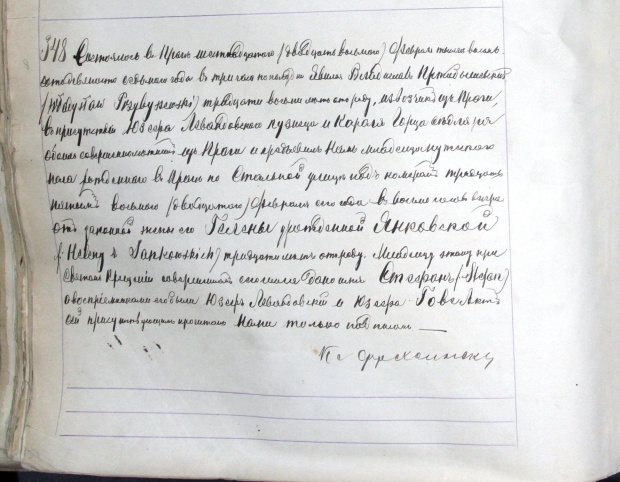 348 Состоялось в Праге шестнадцатого (двадцать восьмого) Февраля тысяча восемь
сотъ девяносто седьмого года в три часа по полудни Явился
тридцати восьми летъ отъ роду, изъ Праги,
в присутствии Юзефа Левандовского кузнеца и Кароля Горца столяра
обоихъ совершеннолетнихъ изъ Праги и предъявилъ Намъ младенца мужескаго
пола рожденного в Праге по Стальной улице подъ номеромъ тридцать
пятымъ восьмого (двадцатого) Февраля сего года в восемь часов вечера
отъ законной жены его Гелены урожденной Янковской
(Heleny z Jankowskich) тридцати летъ отроду. Младенцу этому при
Святомъ Крещении совершенномъ сего числа дано имя Стефанъ (Stefan)
а восприемниками его были Юзефъ Левандовский и Юзефа Актъ
сей присутствующимъ прочитанъ Нами только подписанъ